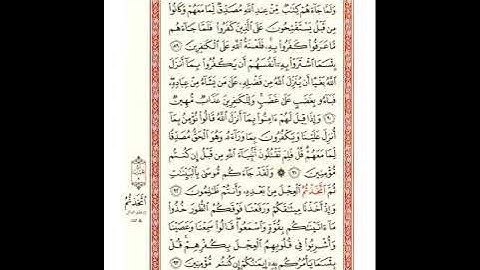 وَلَمَّا جَآءَهُمْ كِتَٰبٌ مِّنْ عِندِ ٱللَّهِ مُصَدِّقٌ لِّمَا مَعَهُمْ وَكَانُوا۟
مِن قَبْلُ يَسْتَفْتِحُونَ عَلَى ٱلَّذِينَ كَفَرُوا۟ فَلَمَّا جَآءَهُم
مَّا عَرَفُوا۟ كَفَرُوا۟ بِهِۦ فَلَعْنَةُ ٱللَّهِ عَلَى ٱلْكَٰفِرِينَ ٨٩
بِئْسَمَا ٱشْتَرَوْا۟ بِهِۦٓ أَنفُسَهُمْ أَن يَكْفُرُوا۟ بِمَآ أَنزَلَ
ٱللَّهُ بَغْيًا أَن يُنَزِّلَ ٱللَّهُ مِن فَضْلِهِۦ عَلَىٰ مَن يَشَآءُ مِنْ عِبَادِهِۦ
فَبَآءُو بِغَضَبٍ عَلَىٰ غَضَبٍ وَلِلْكَٰفِرِينَ عَذَابٌ مُّهِينٌ
٩٠ وَإِذَا قِيلَ لَهُمْ ءَامِنُوا۟ بِمَآ أَنزَلَ ٱللَّهُ قَالُوا۟ نُؤْمِنُ بِمَآ
أُنزِلَ عَلَيْنَا وَيَكْفُرُونَ بِمَا وَرَآءَهُۥ وَهُوَ ٱلْحَقُّ مُصَدِّقًا
لِّمَا مَعَهُمْ قُلْ فَلِمَ تَقْتُلُونَ أَنۢبِيَآءَ ٱللَّهِ مِن قَبْلُ إِن كُنتُم
مُّؤْمِنِينَ ٩١ ۞ وَلَقَدْ جَآءَكُم مُّوسَىٰ بِٱلْبَيِّنَٰتِ
ثُمَّ ٱتَّخَذْتُمُ ٱلْعِجْلَ مِنۢ بَعْدِهِۦ وَأَنتُمْ ظَٰلِمُونَ ٩٢
وَإِذْ أَخَذْنَا مِيثَٰقَكُمْ وَرَفَعْنَا فَوْقَكُمُ ٱلطُّورَ خُذُوا۟
مَآ ءَاتَيْنَٰكُم بِقُوَّةٍ وَٱسْمَعُوا۟ قَالُوا۟ سَمِعْنَا وَعَصَيْنَا
وَأُشْرِبُوا۟ فِى قُلُوبِهِمُ ٱلْعِجْلَ بِكُفْرِهِمْ قُلْ
بِئْسَمَا يَأْمُرُكُم بِهِۦٓ إِيمَٰنُكُمْ إِن كُنتُم مُّؤْمِنِينَ ٩٣
ٱتَّخَذْتُمُ